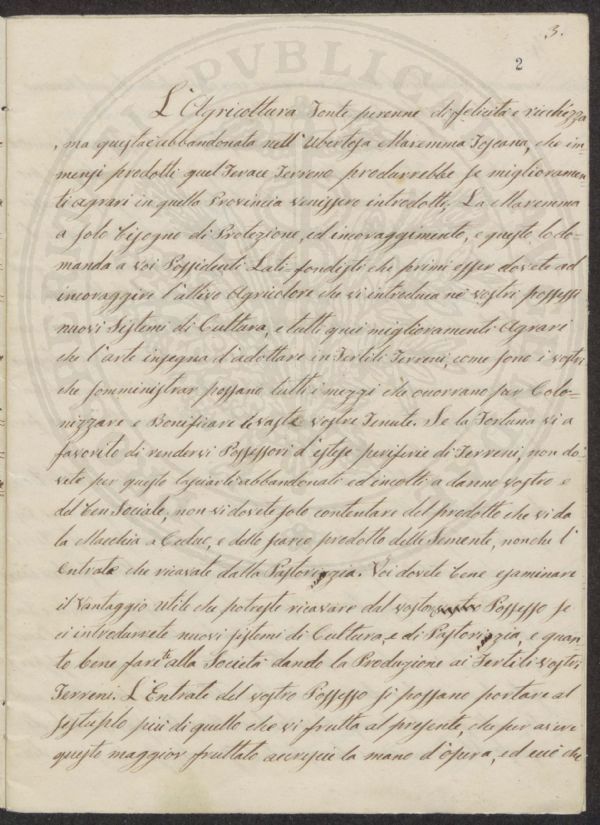 3.
2
L'Agricoltura Fonte perenne di felicità e ricchizza
, ma questa è abbandonata nell'Ubertosa Maremma Toscana, che im-
mensi prodotti quel Ferace Terreno produrrebbe se miglioramen
ti agrari in quella Provincia venissero introdotti, La Maremma
a solo bisogno di Protezione, ed incoraggimento, e questo lo do-
manda a voi Possidenti Lati-fondisti che primi esser dovete ad
incoraggire l'attivo Agricolore che vi introduca ne vostri possessi
nuovi Sistemi di Cultura, e tutti quei miglioramenti Agrari
che l'arte insegna d'adottare in Fertili Terreni, come sono i vostri
che somministrar possano tutti i mezzi che ocorrano per Colo=
nizzare e Bonificare le vaste vostre Tenute. Se la Fortuna vi a
favorito di rendervi Possessori d'estese periferie di Terreni, non do=
vete per questo lasciarli abbandonati ed incolti a danno vostro e
del ben Sociale, non vi dovete solo contentare del prodotto che vi da
la Macchia a Ceduo, e dello scarso prodotto delle Semente, nonche l'
Entrate che ricavate dalla Pastorizzia. Voi dovete bene esaminare
il Vantaggio Utile che potreste ricavare dal vostro Possesso se
ci introdurrete nuovi sistemi di Cultura, e di Pastorizzia, e quan
to bene farete alla Società dando la Produzione ai Fertili vostri
Terreni. L'Entrate del vostro Possesso si possano portare al
sestuplo più di quello che vi frutta al presente, che per avere
questo maggior fruttato accresce la mano d'opera, ed ecco che